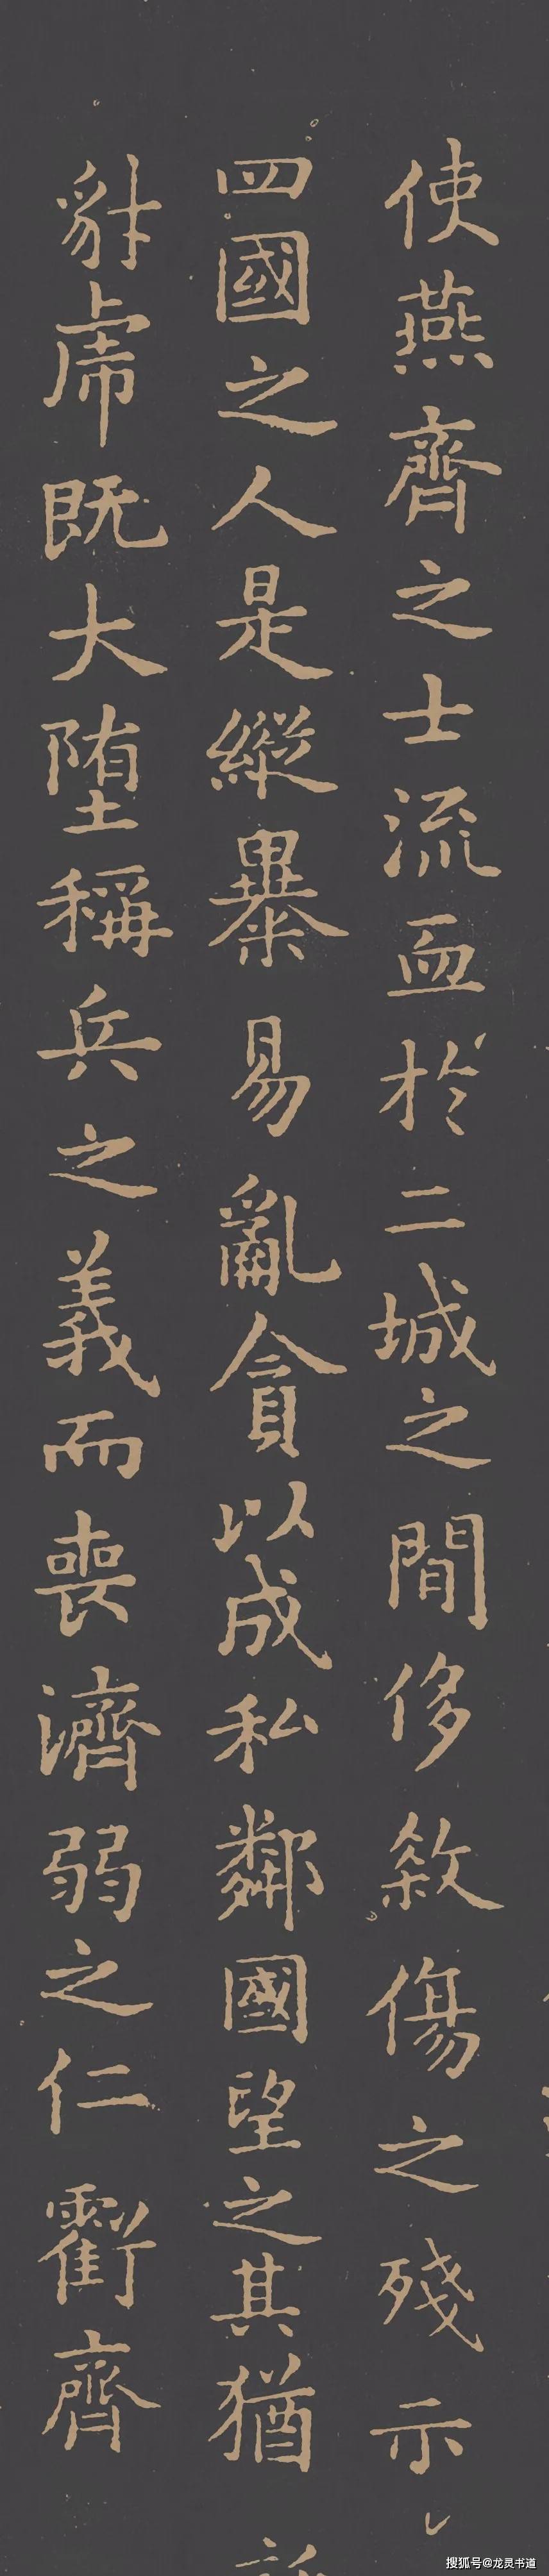 使燕齊之士流血於二城之間侈煞傷之殘示
四國之人是縱暴易亂貪以成私鄰國望之其猶
豺虎既大墮稱兵之義而喪濟弱之仁虧齊
搜狐号@龙灵书道